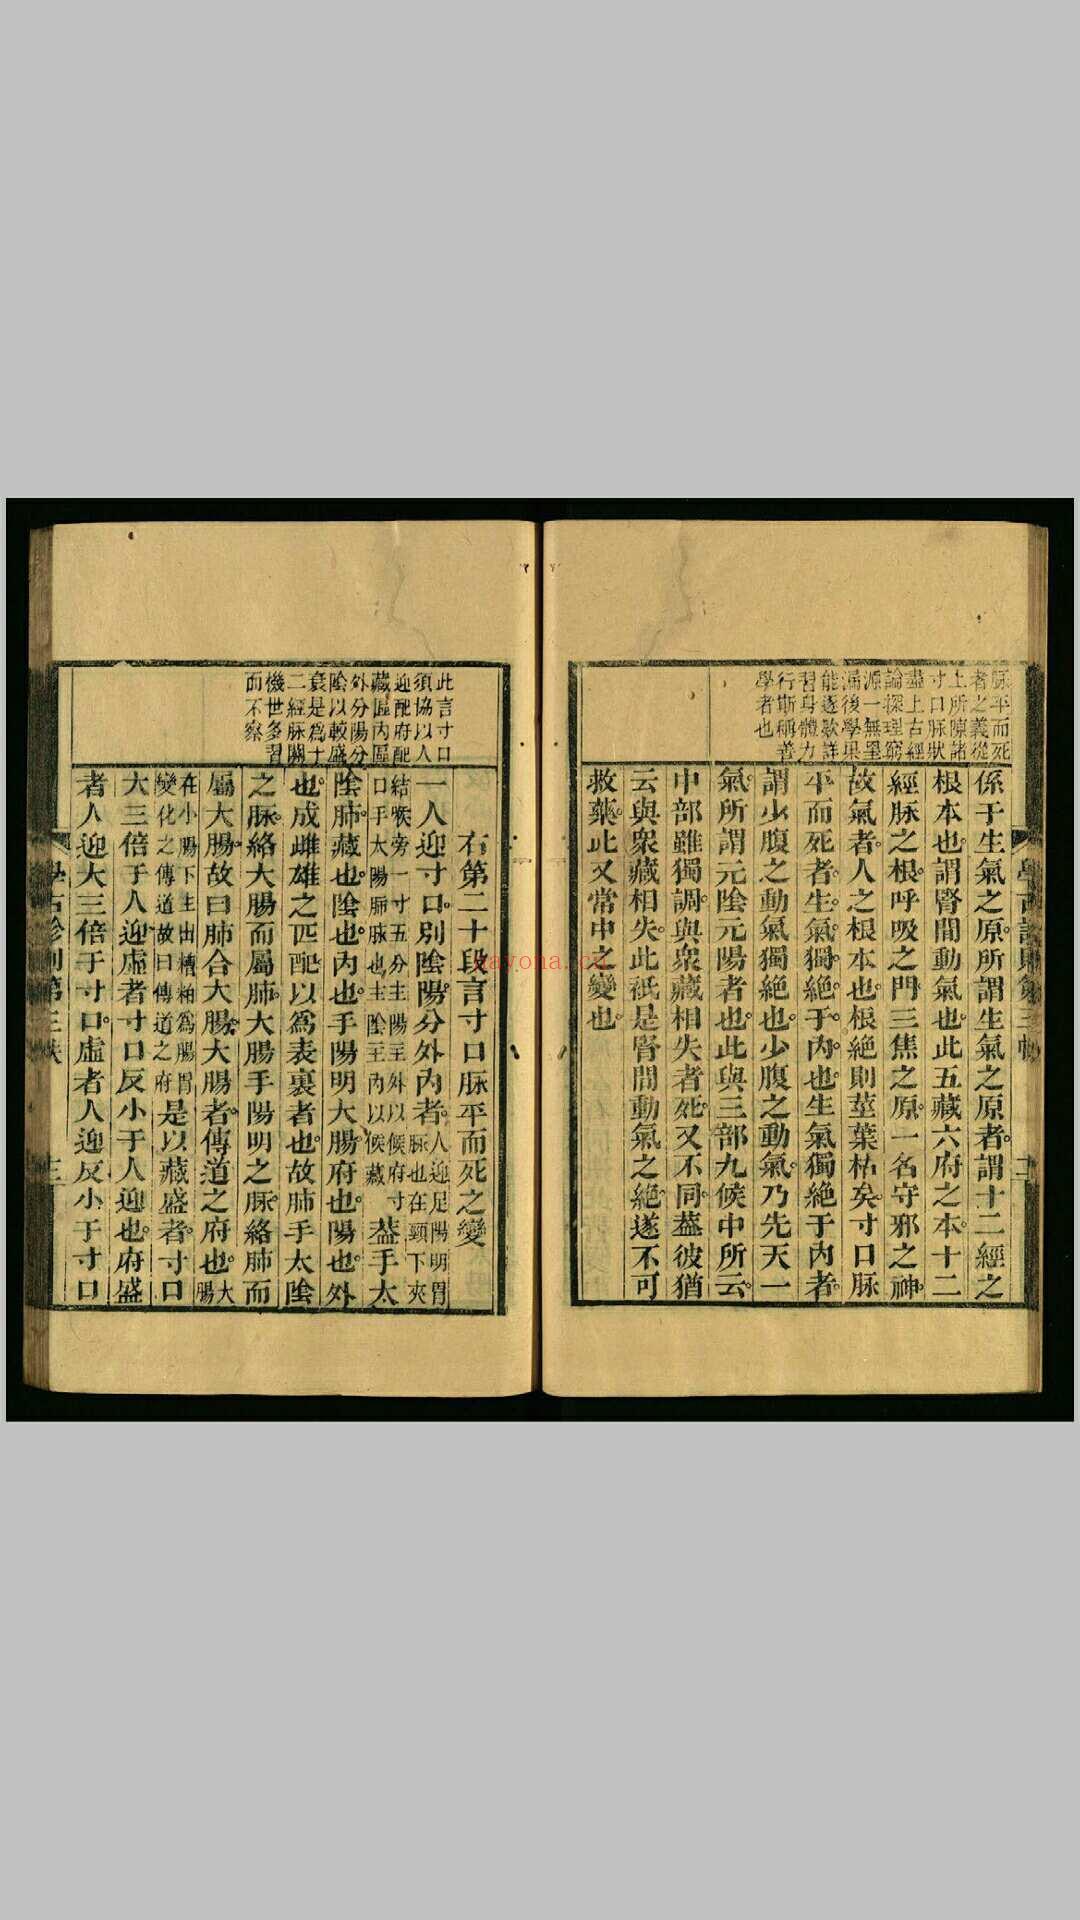 脉平而死
者之義從
上所𨻶諸
寸口脉狀
盡上古經
論探理窮
源一無罣
漏後學果
能逐欵詳
習身體力
行斯稱善
學者也
係于生氣之原所謂生氣之原者謂十二經之
根本也謂腎間動氣也此五藏六府之本十二
經脉之根呼吸之門三焦之原一名守邪之神
故氣者人之根本也根絶則莖葉枯矣寸口脉
平而死者生氣獨絶于內也生氣獨絶于內者
謂少腹之動氣獨絶也少腹之動氣乃先天一
氣所謂元陰元陽者也此與三部九候中所云
中部雖獨調與衆藏相失者死又不同葢彼猶
云與衆藏相失此祇是腎間動氣之絶遂不可
救藥此又常中之變也
學古診則第三帙
此言寸口
須協以人
迎配府配
藏區內區
外分陽分
陰以較盛
衰是為十
二經脉關
機世多習
而不察
右第二十段言寸口脉平而死之變
一人迎寸口別陰陽分外內者人迎足陽明胃
脉也在頸下夾
結喉旁一寸五分主陽主外以候府寸
口手太陽肺脉也主陰主內以候藏葢手太
陰肺藏也陰也內也手陽明大腸府也陽也外
也成雌雄之匹配以為表裏者也故肺手太陰
之脉絡大腸而屬肺大腸手陽明之脉絡肺而
屬大腸故曰肺合大腸大腸者傳道之府也大
腸
在小腸下主出糟粕為腸胃
變化之傳道故曰傳道之府是以藏盛者寸口
大三倍于人迎虛者寸口反小于人迎也府盛
者人迎大三倍于寸口虛者人迎反小于寸口
學古診則第三帙